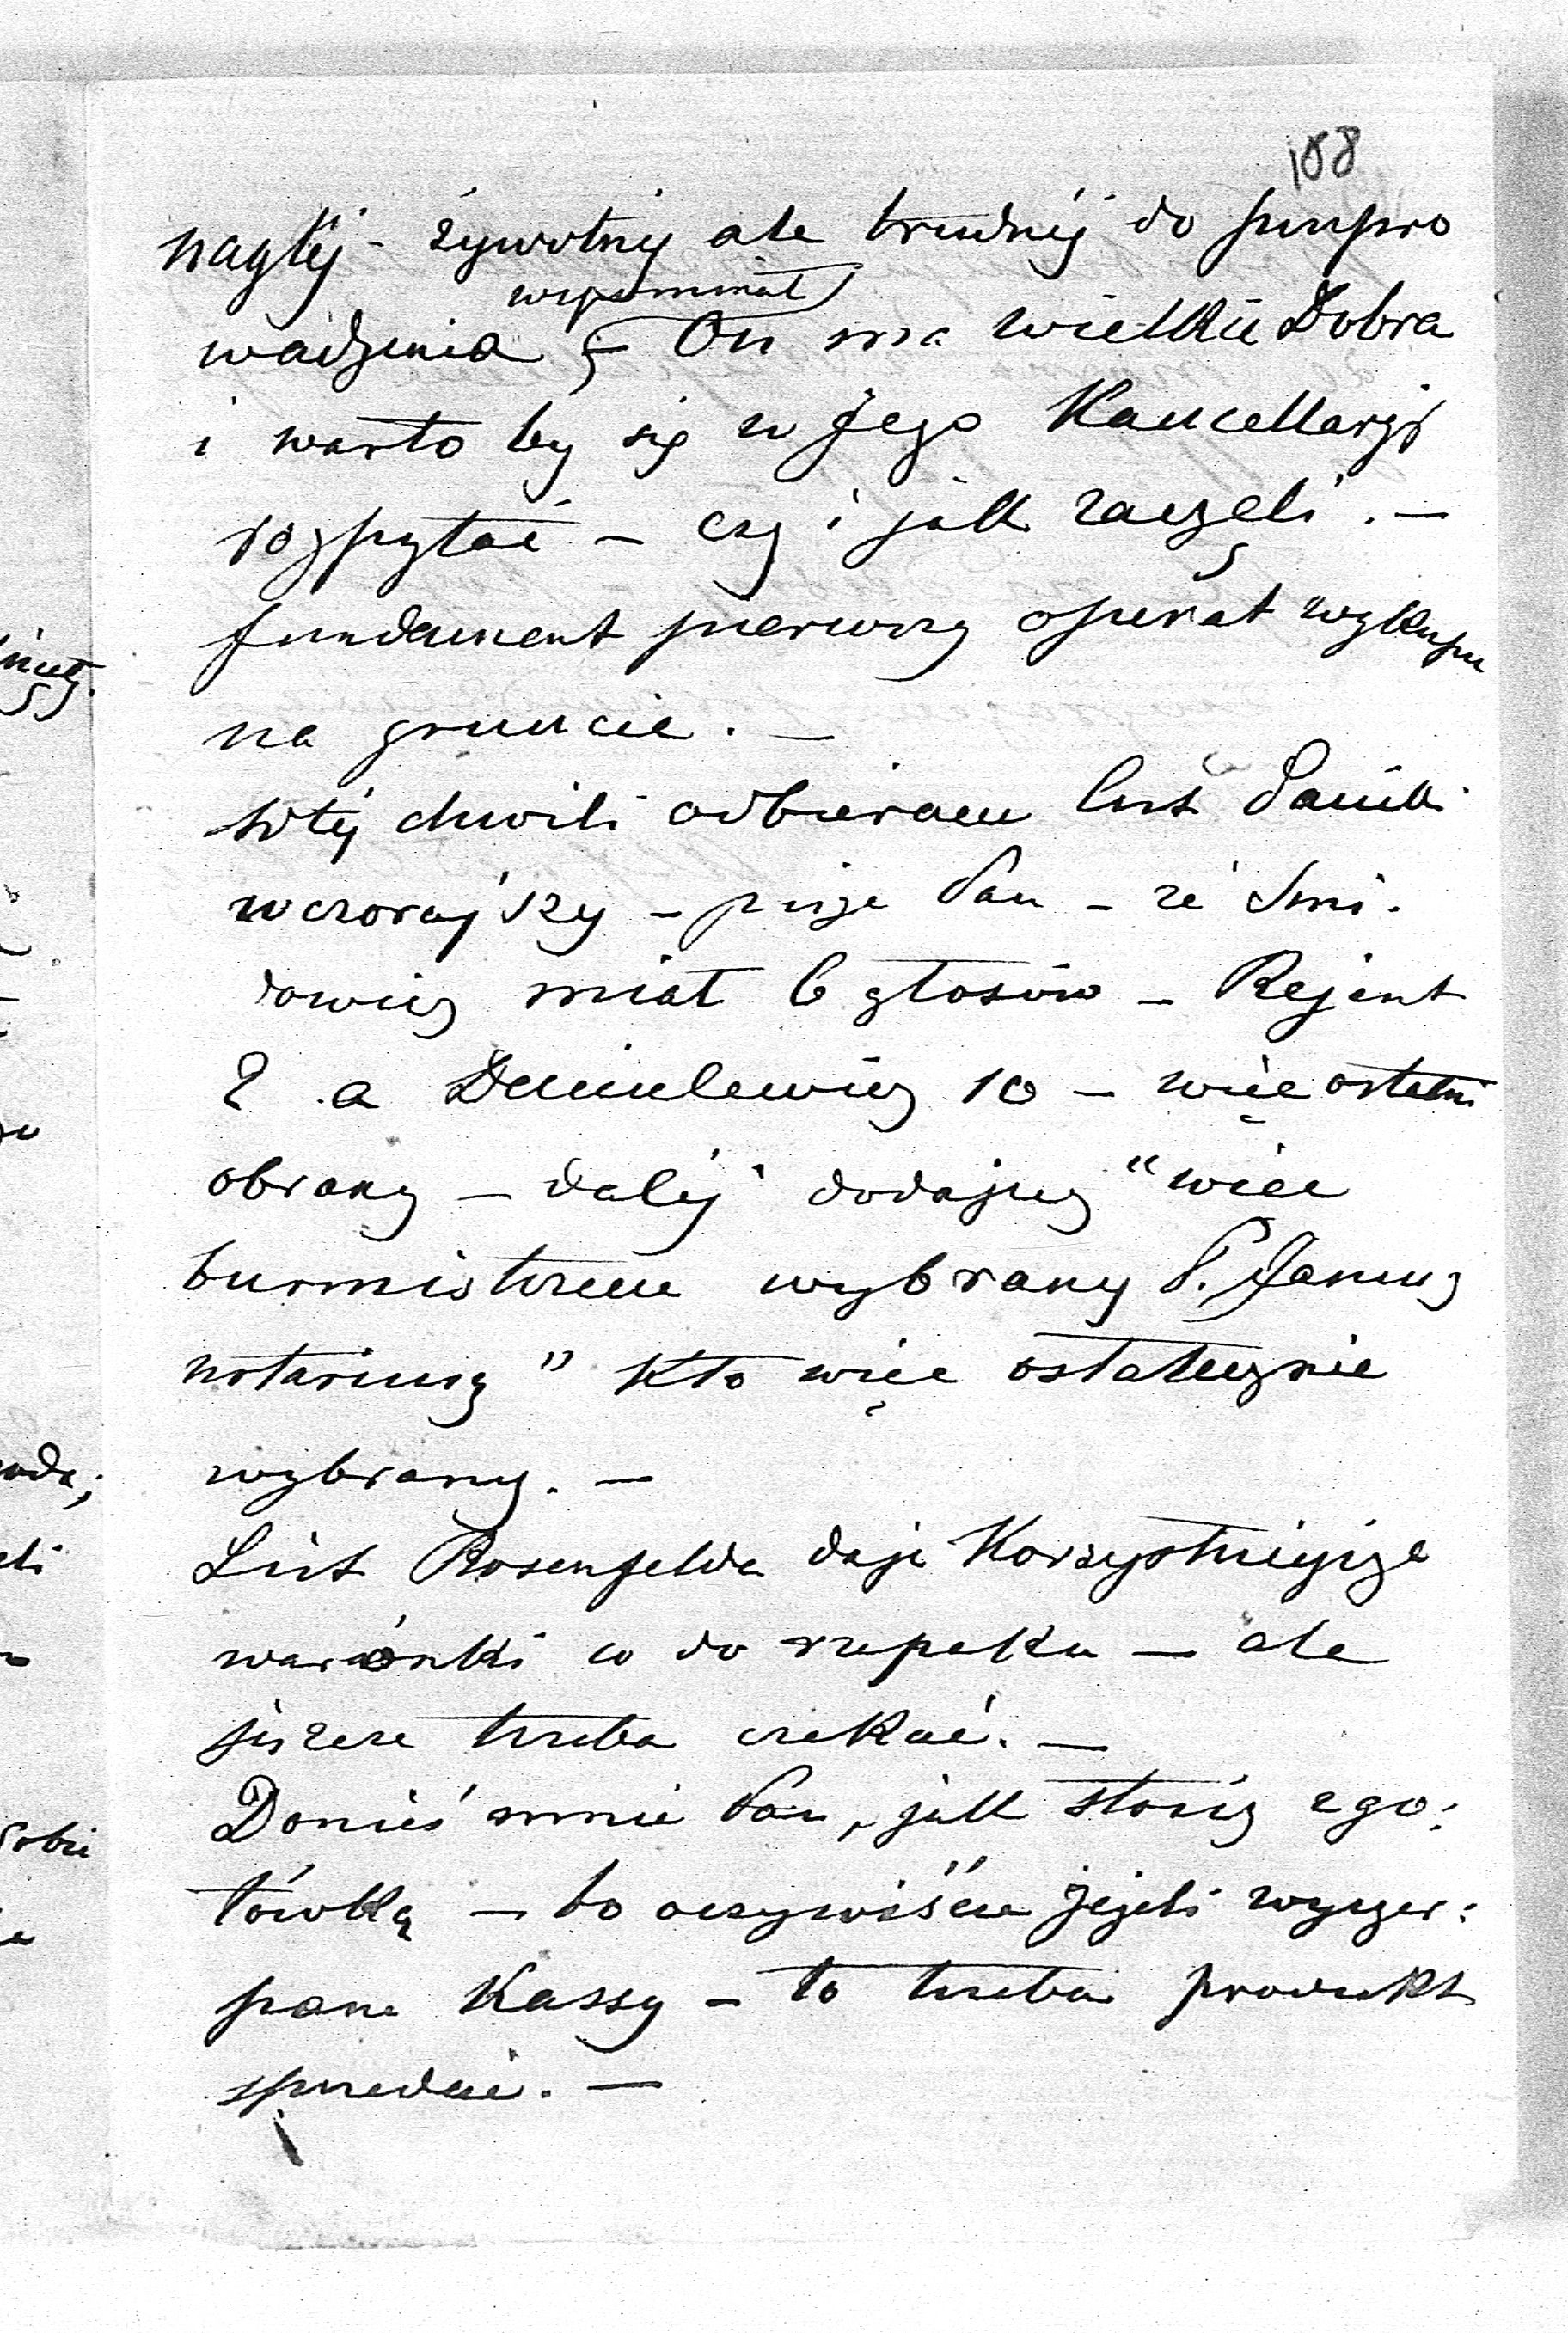 188
nagłéj - żywotnéj ale trudnéj do przepro
wspominał
wadzenia - On ma wielkie Dobra
i warto by się w Jego Kancellarji
rozpytać - czy i jak zaczęli. -
fundament pierwszy operat wykupu
na gruncie. -
W téj chwili odbieram list Pański
wczorajszy - pisze Pan - że Smi.
dowicz miał 6 głosów - Rejent
2 a Danielewicz 10 - więc ostatni
obrany - daléj dodajesz "więc
burmistrzem wybrany P. Janusz
notariusz" Kto więc ostatecznie
wybrany. -
List Rosenfelda daje Korzystniejsze
warónki co do rzepaku - ale
jeszcze trzeba czekać. -
Donieś mnie Pan, jak stoisz z go:
tówką - bo oczywiście jeżeli wyczer:
pane Kassy - to trzeba produkt
sprzedać. -